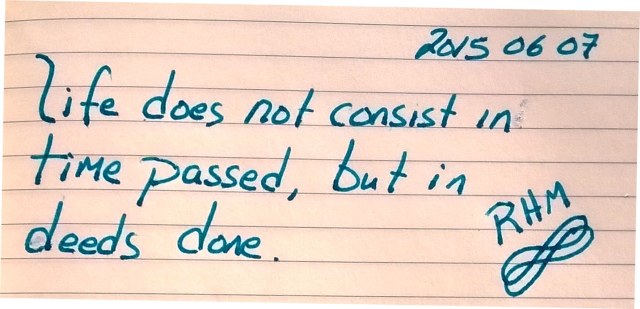 2015 06 07
Life does not consist in
time passed, but in
deeds done.
RHM